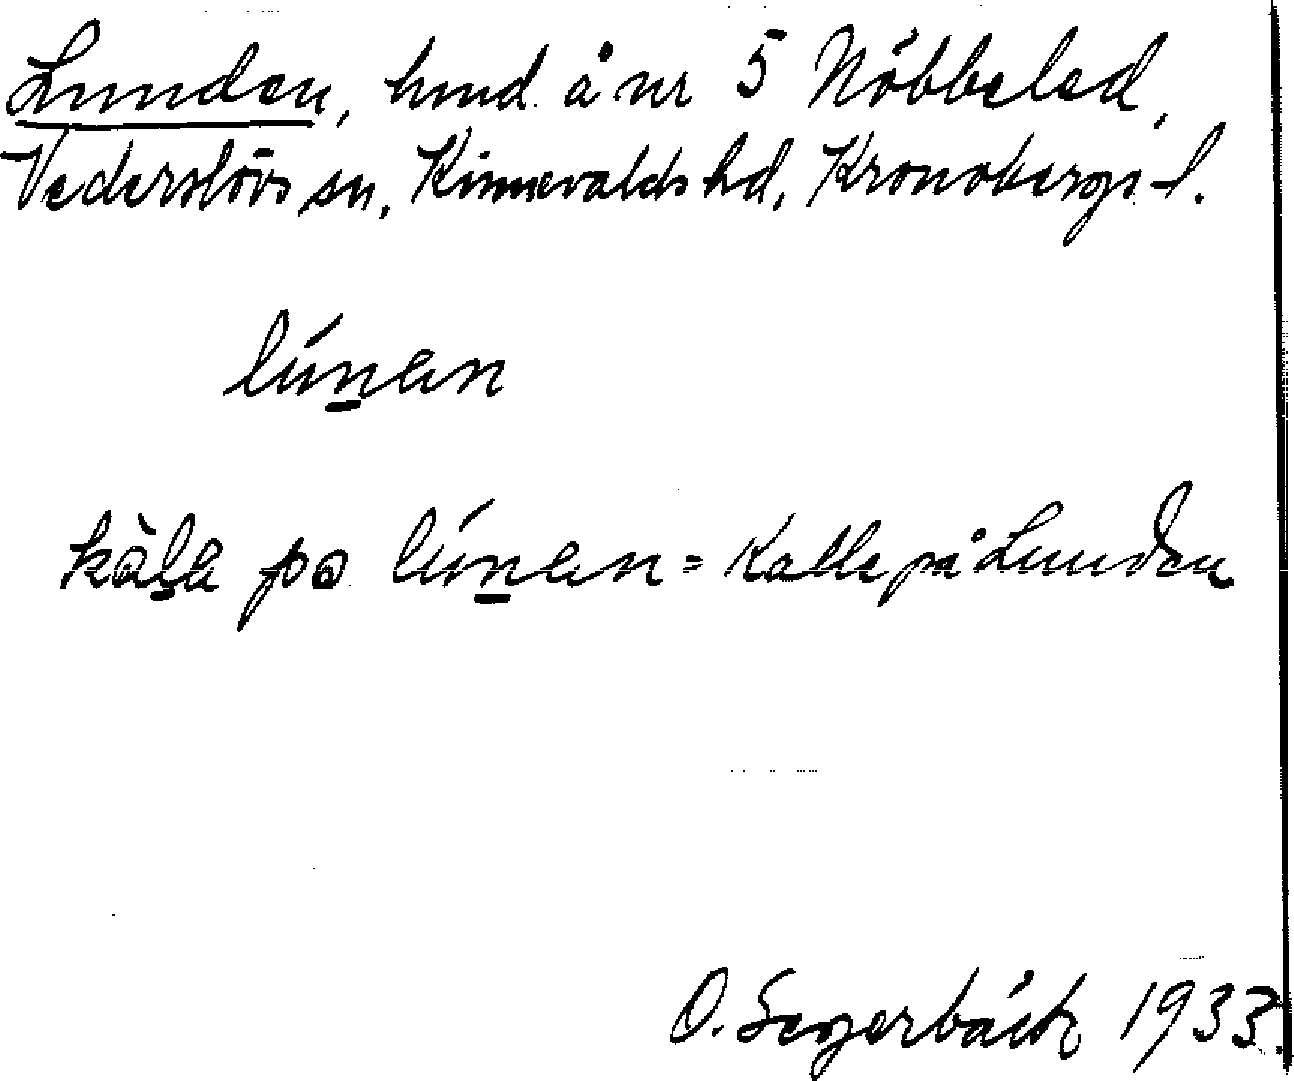 Lunden, hmd. å nr 5 Nöbbeled,
Vederslövs sn, Kinnevalds hd, Kronobergs l.
lún̲an
kàl̲a po lún̲an = Kalle på Lunden
O. Segerbäck 1933.